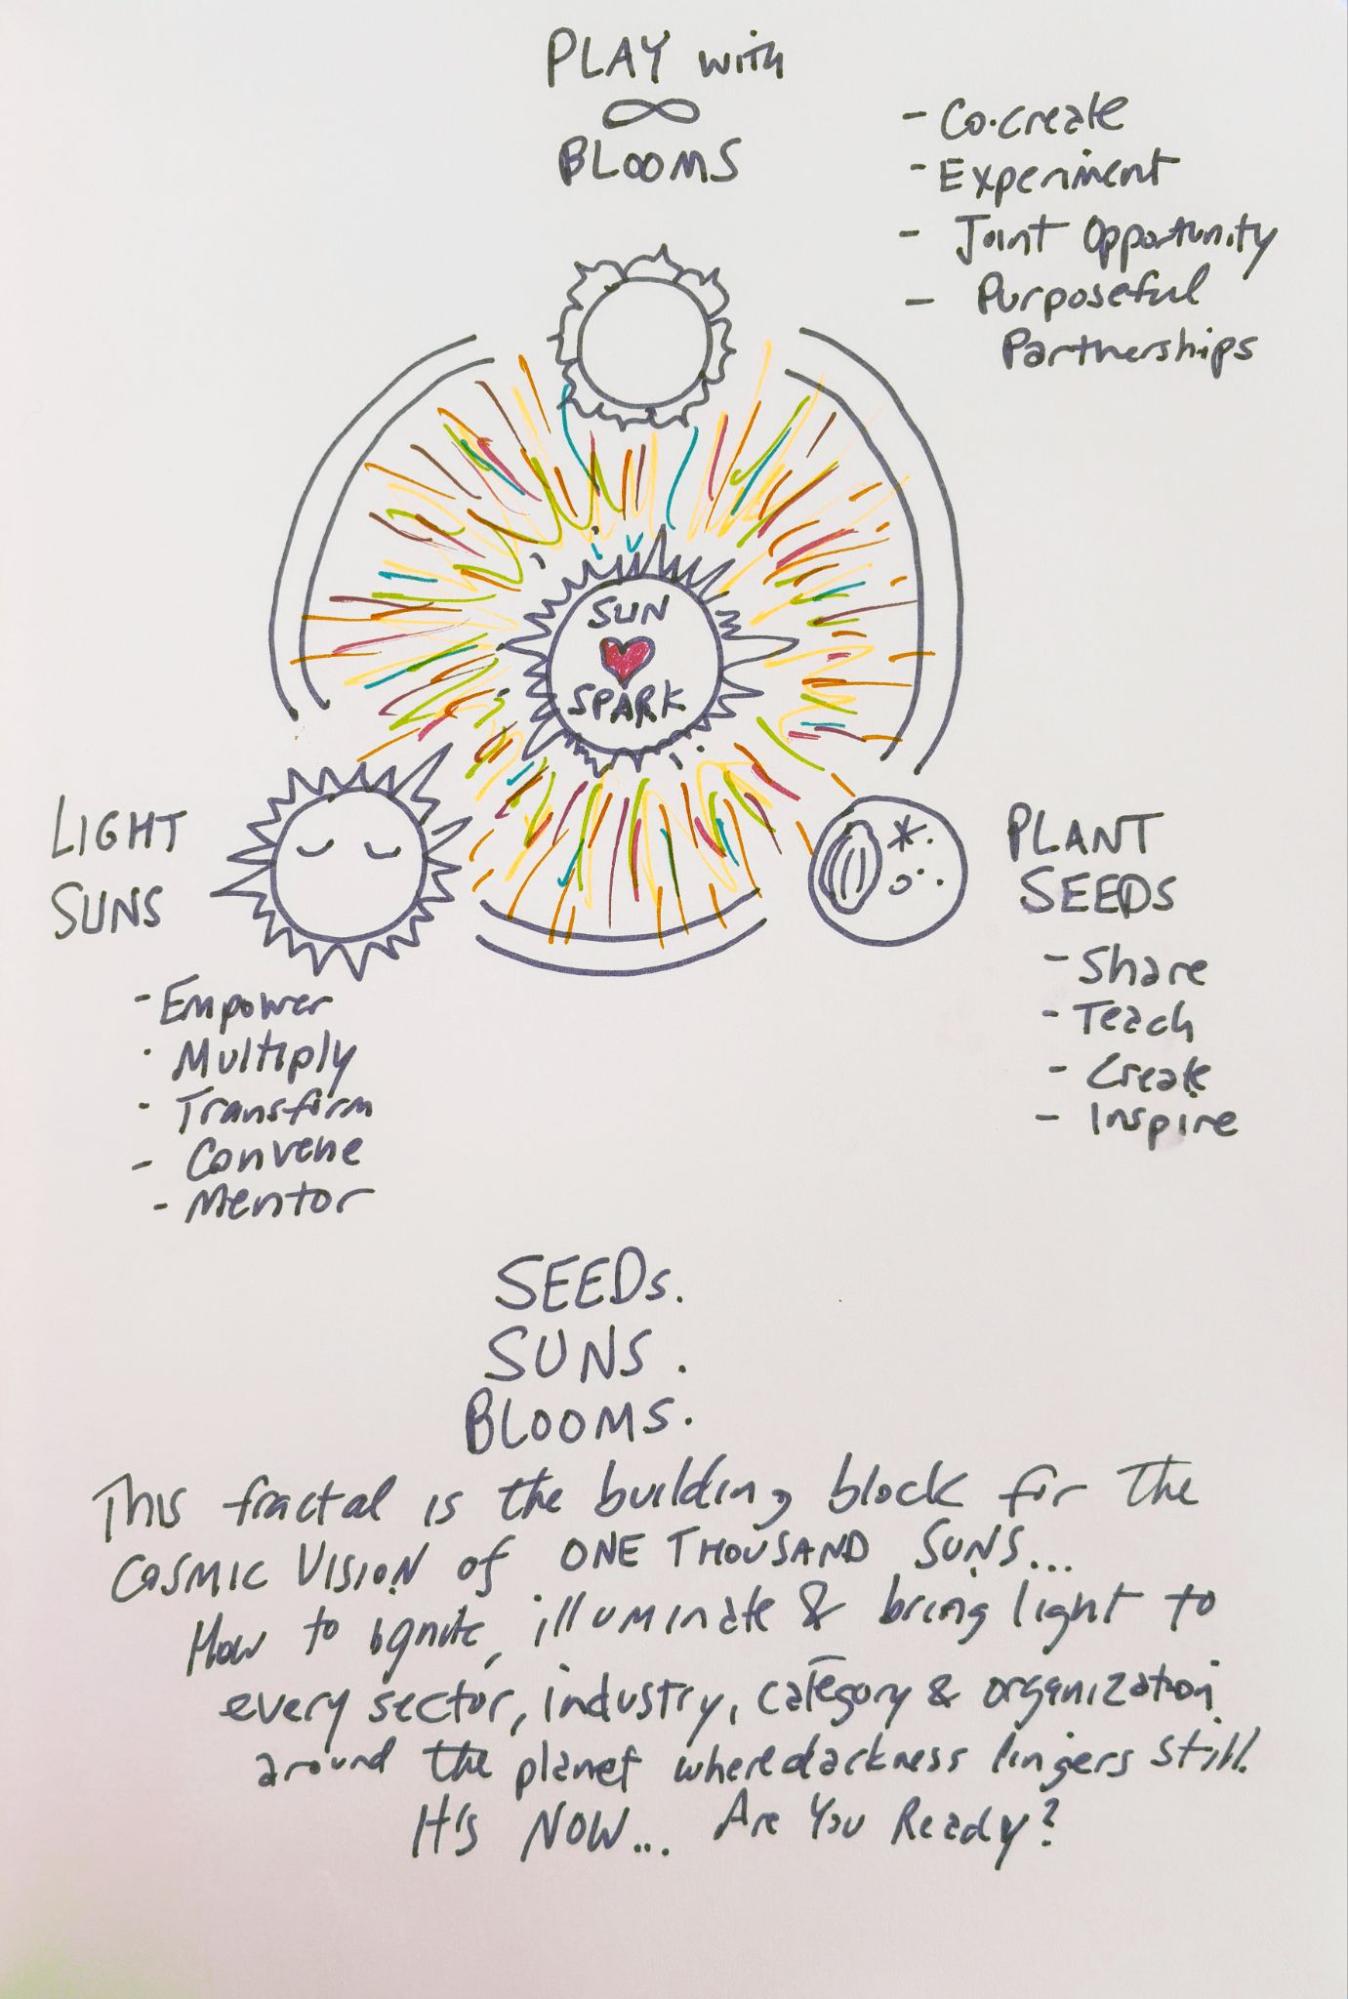 PLAY with
∞
BLOOMS
- Co-create
- Experiment
- Joint Opportunity
- Purposeful
Partnerships
SUN
SPARK
LIGHT
SUNS
- Empower
· Multiply
- Transform
- Convene
- Mentor
PLANT
SEEDS
- Share
- Teach
- Create
- Inspire
SEEDs.
SUNS.
BLOOMS.
This fractal is the building block for the
COSMIC VISION of ONE THOUSAND SUNS...
How to ignite, illuminate & bring light to
every sector, industry, category & organization
around the planet where darkness lingers still.
It's NOW... Are You Ready?